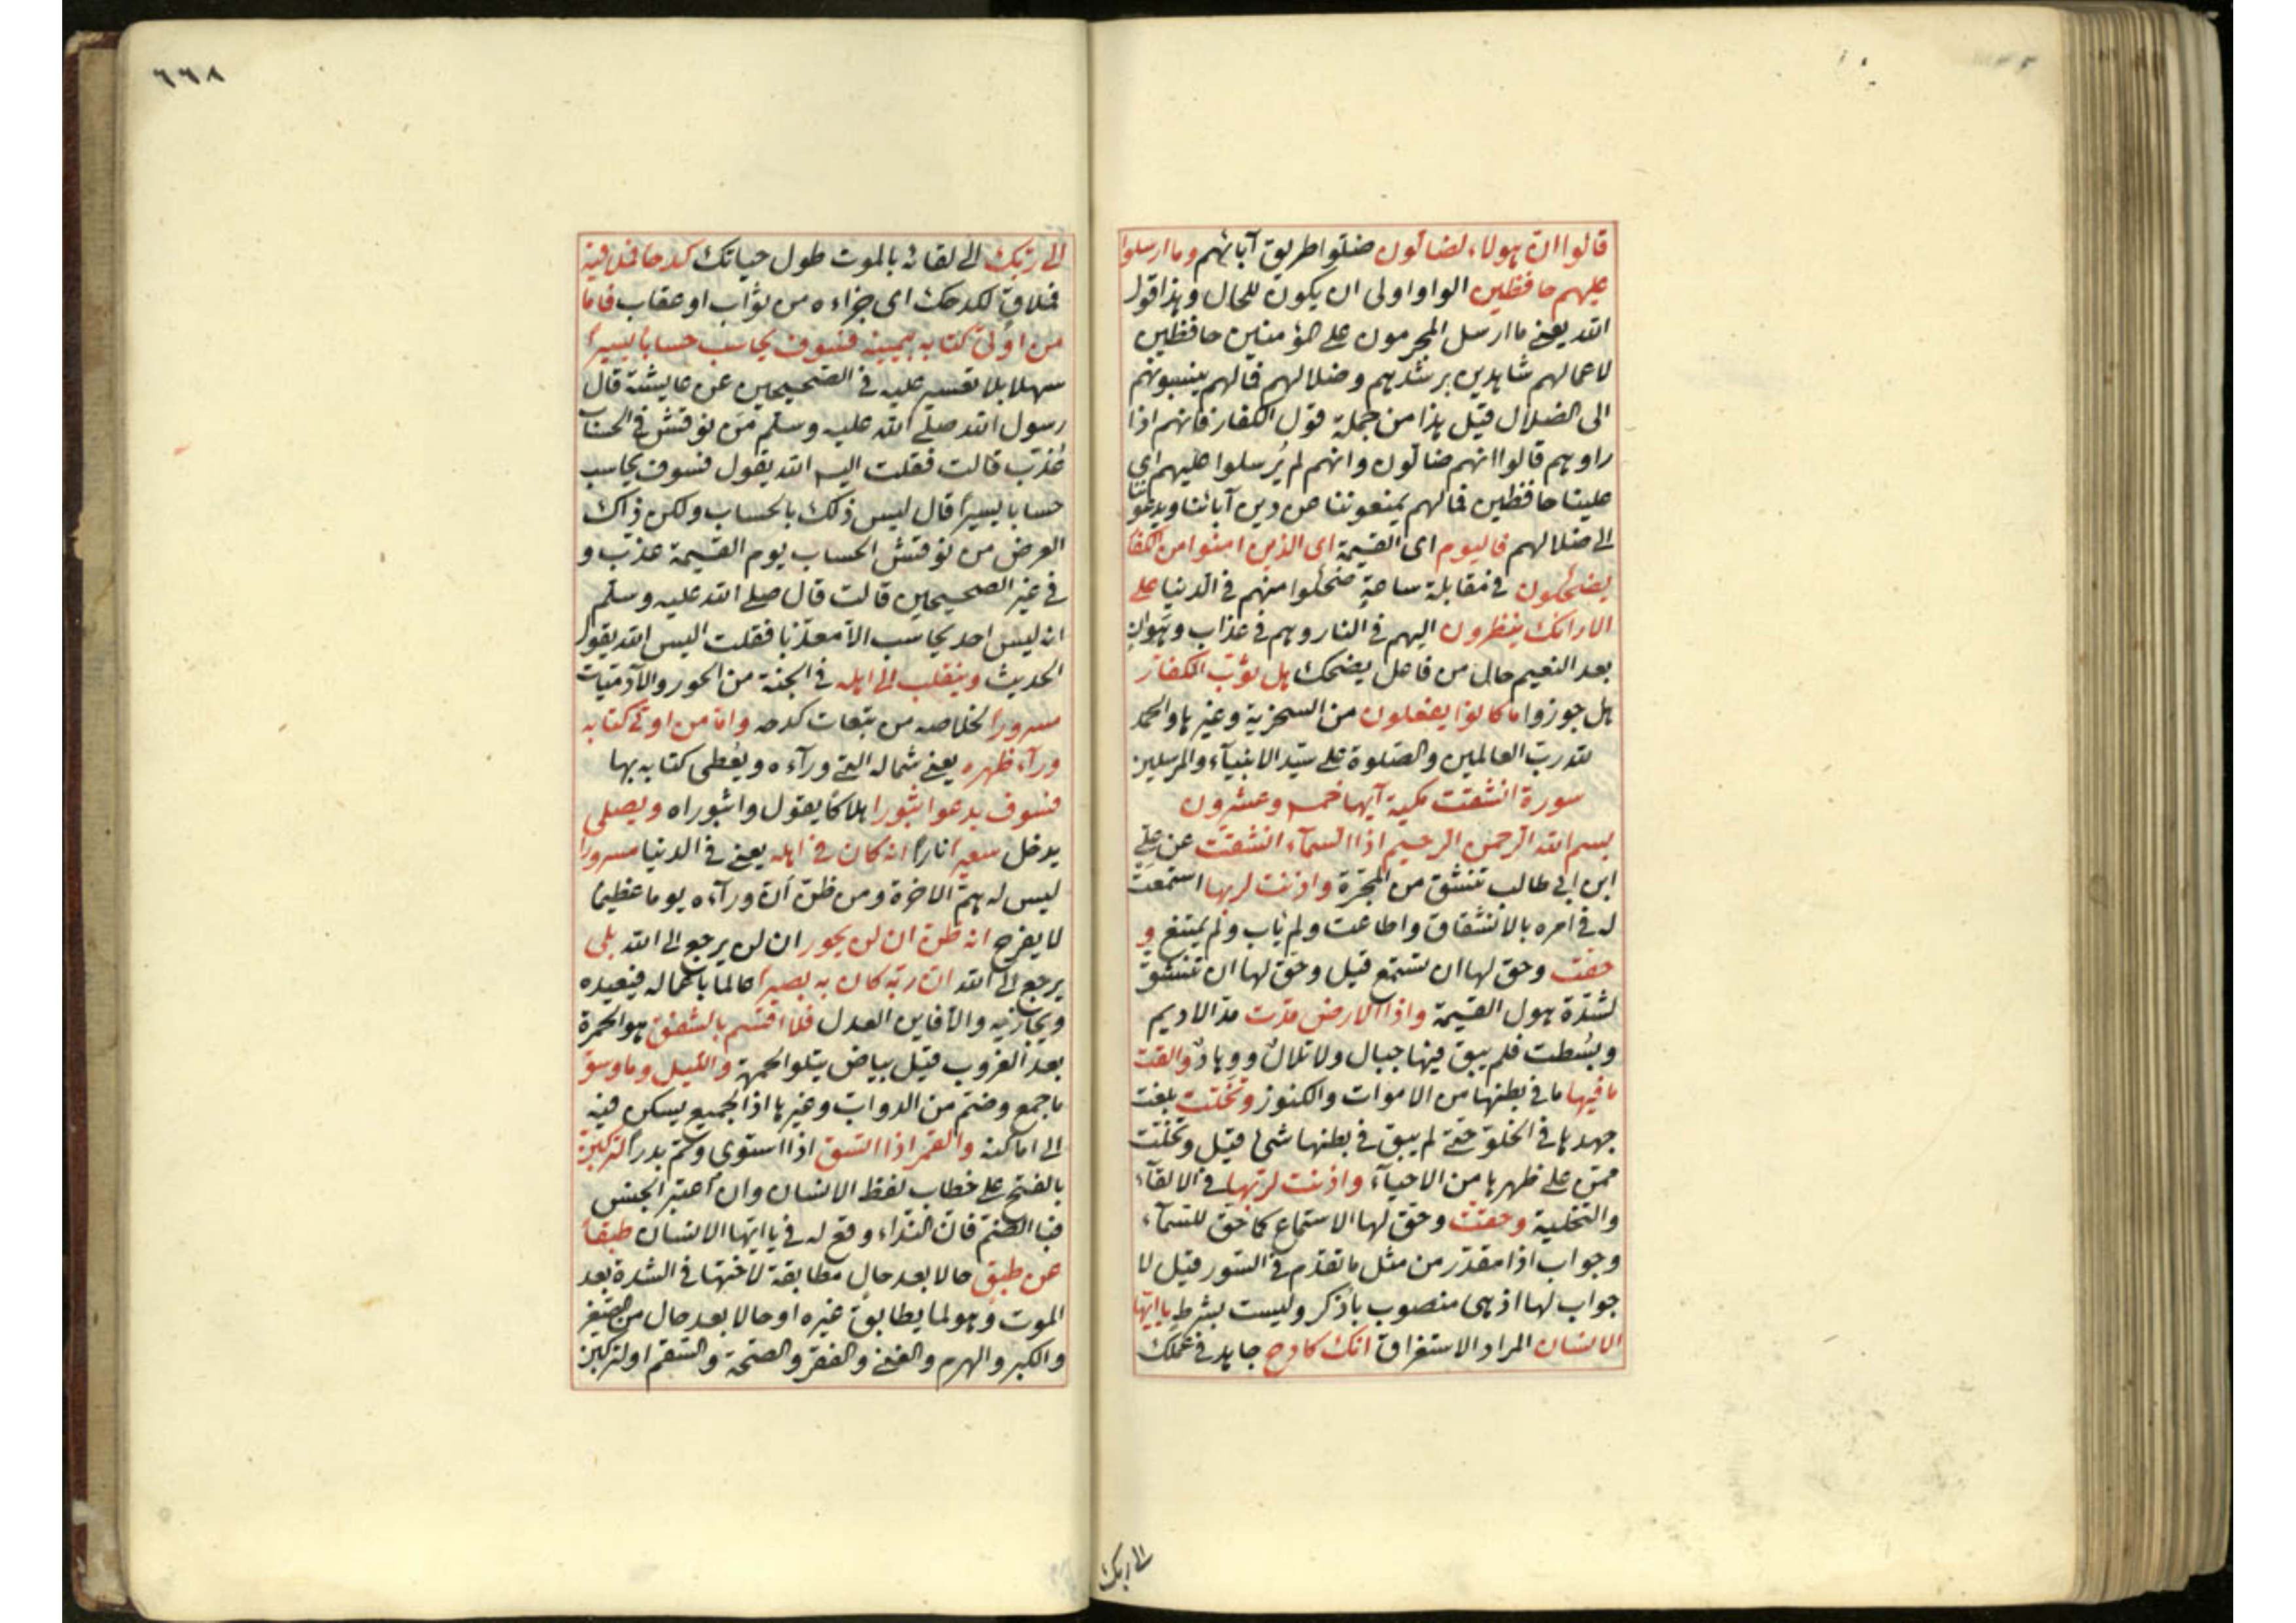 قالوا ان هولاء لضالون ضلوا طريق آبائهم وما ارسلوا
عليهم حافظين الواو اولى ان يكون للحال وهذا قول
الله يعني ما ارسل المجرمون على المؤمنين حافظين
لاعمالهم شاهدين برشدهم وضلالهم فمالهم ينسبونهم
الى الضلال قيل هذا من جملة قول الكفار فانهم اذا
راوهم قالوا انهم ضالون وانهم لم يُرسلوا عليهم اى
علينا حافظين فمالهم يمنعوننا من دين آبائنا ويدعوننا
الى ضلالهم فاليوم اى القيمة اى الذين امنوا من الكفار
يضحكون فى مقابلة ساعةٍ ضحكوا منهم فى الدنيا على
الارائك ينظرون اليهم فى النار وهم فى عذاب وهوان
بعد النعيم حال من فاعل يضحك هل ثوّب الكفار
هل جوزوا ما كانوا يفعلون من السخرية وغيرها والحمد
لله رب العالمين والصلوة على سيد الانبياء والمرسلين
سورة انشقت مكية آيها خمس وعشرون
بسم الله الرحمن الرحيم اذا السمآء انشقت عن علي
ابن ابى طالب تنشق من المجرّة واذنت لربها استمعت
له فى امره بالانشقاق واطاعت ولم ياب ولم يمتنع و
حقت وحق لها ان تستمع قيل وحق لها ان تنشق
لشدة هول القيمة واذا الارض مدت مدّ الاديم
وبسطت فلم يبق فيها جبال ولا تلالٌ ووهادٌ والقت
ما فيها ما فى بطنها من الاموات والكنوز وتخلت بلغت
جهدها فى الخلو حتى لم يبق فى بطنها شئ قيل وتخلت
ممن على ظهرها من الاحيآء واذنت لربها فى الالقآء
والتخلية وحقت وحق لها الاستماع كما حق للسمآء
وجواب اذا مقدر من مثل ما تقدم فى السور قيل لا
جواب لها اذ هى منصوب باذكر وليست بشرط ياايها
الانسان المراد الاستغراق انك كادح جاهد فى عملك
الى ربك
٦٦٨
الى ربك الى لقائه بالموت طول حياتك كدحا فملاقيه
فملاقٍ لكدحك اى جزاءه من ثواب او عقاب فاما
من اوتى كتابه بيمينه فسوف يحاسب حسابا يسيرا
سهلا بلا تعسير عليه فى الصحيحين عن عايشة قال
رسول الله صلى الله عليه وسلم مَن نوقش فى الحساب
عُذّب قالت فقلت اليس الله يقول فسوف يحاسب
حسابا يسيرا قال ليس ذلك بالحساب ولكن ذاك
العرض من نوقش الحساب يوم القيمة عذّب و
فى غير الصحيحين قالت قال صلى الله عليه وسلم
انه ليس احد يحاسب الا معذّبا فقلت اليس الله يقول
الحديث وينقلب الى اهله فى الجنة من الحور والآدميات
مسرورا لخلاصه من تبعات كدحه واما من اوتى كتابه
ورآء ظهره يعنى شماله التى ورآءه ويُعطى كتابه بها
فسوف يدعوا ثبورا هلاكا يقول واثبوراه ويصلى
يدخل سعيرا نارا انه كان فى اهله يعنى فى الدنيا مسرورا
ليس له همّ الاخرة ومن ظن أن ورآءه يوما عظيما
لا يفرح انه ظن ان لن يحور ان لن يرجع الى الله بلى
يرجع الى الله ان ربه كان به بصيرا عالما باعماله فيعيده
ويجازيه والا فاين العدل فلا اقسم بالشفق هو الحمرة
بعد الغروب قيل بياض يتلو الحمرة والليل وما وسق
ما جمع وضم من الدواب وغيرها اذ الجميع يسكن فيه
الى اماكنه والقمر اذا اتسق اذا استوى وتم بدرا لتركبن
بالفتح على خطاب لفظ الانسان وان اعتبر الجنس
فبالضم فان النداء وقع له فى يا ايها الانسان طبقا
عن طبق حالا بعد حال مطابقة لاختها فى الشدة بعد
الموت وهو لما يطابق غيره او حالا بعد حال من الصغر
والكبر والهرم والغنى والفقر والصحة والسقم او لتركبن